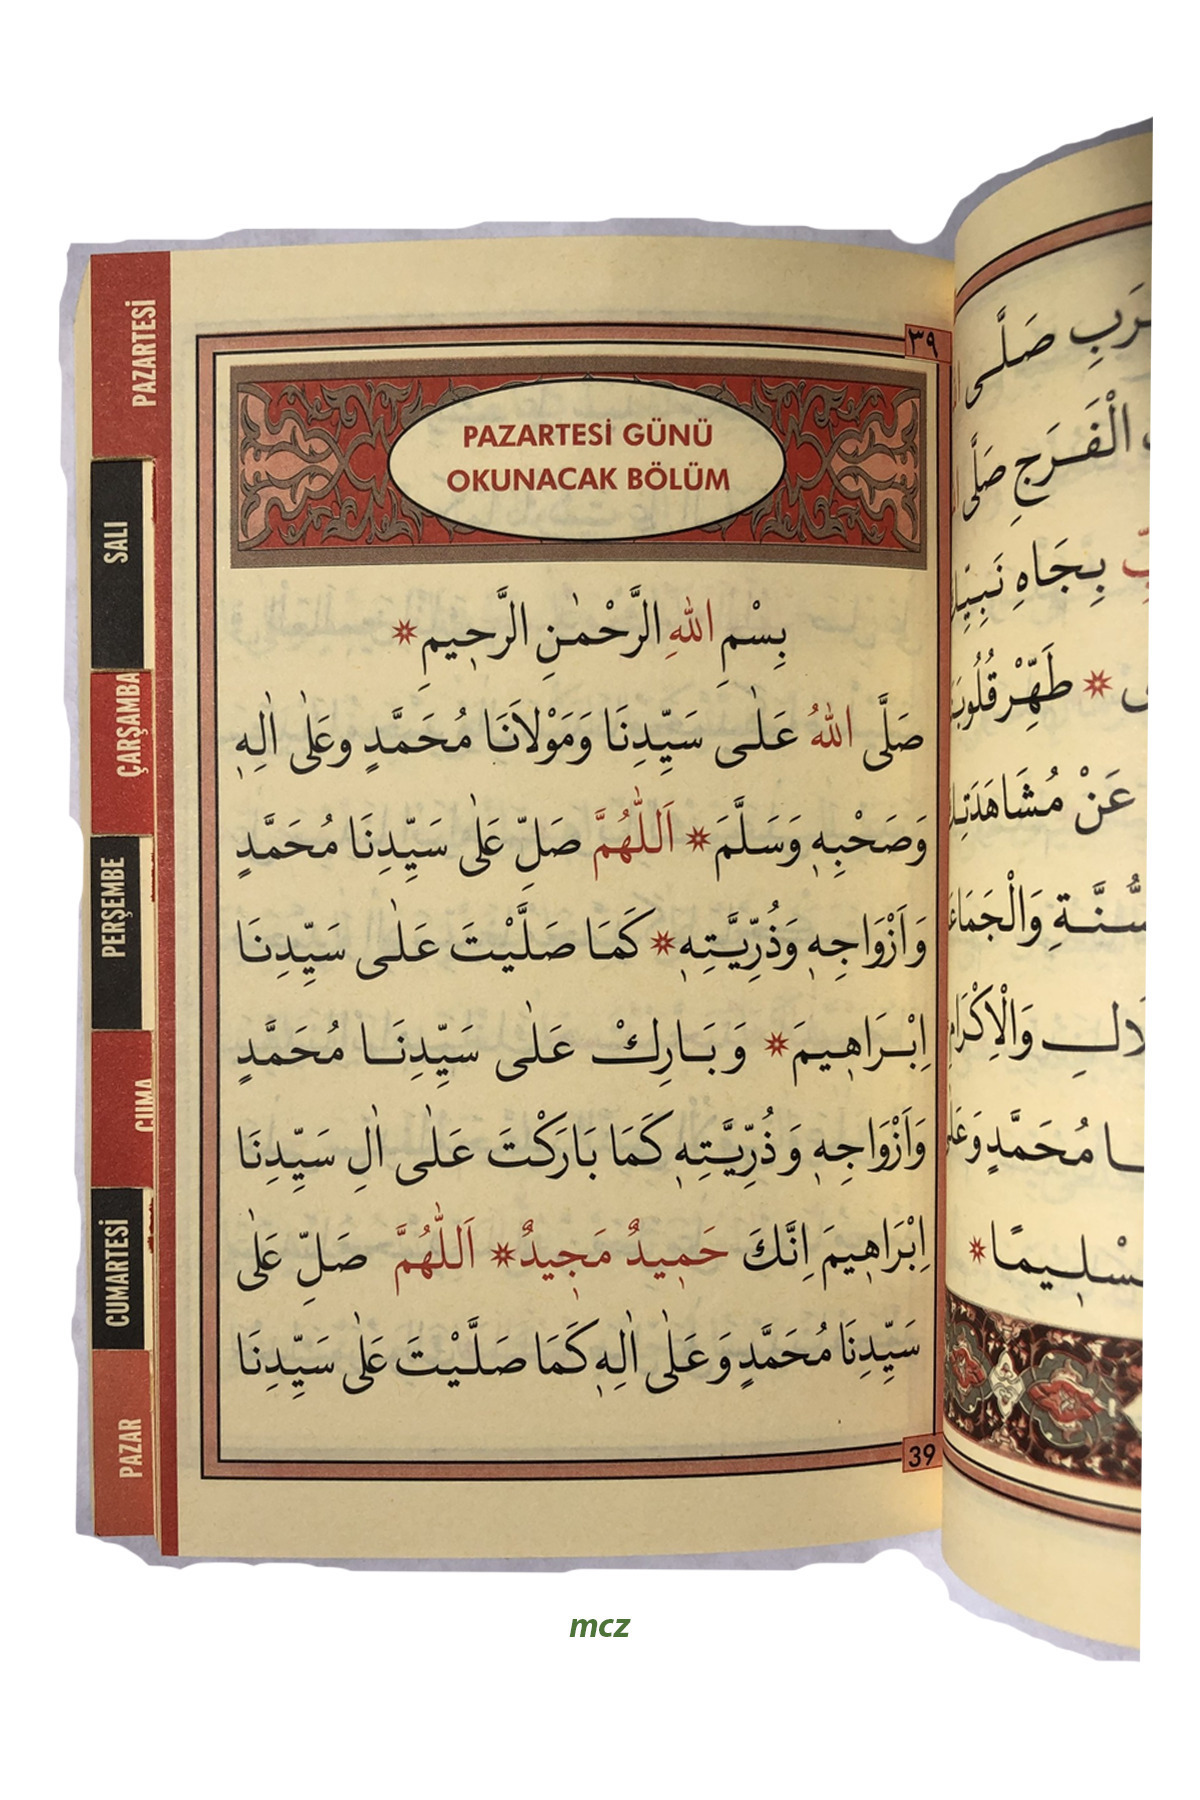 PAZARTESİ
SALI
ÇARŞAMBA
PERŞEMBE
CUMA
CUMARTESİ
PAZAR
٣٩
PAZARTESİ GÜNÜ
OKUNACAK BÖLÜM
بِسْمِ اللهِ الرَّحْمٰنِ الرَّحٖيمِ
صَلَّى اللهُ عَلٰى سَيِّدِنَا وَمَوْلاَنَا مُحَمَّدٍ وعَلٰى اٰلِهٖ
وَصَحْبِهٖ وَسَلَّمَ اَللّٰهُمَّ صَلِّ عَلٰى سَيِّدِنَا مُحَمَّدٍ
وَاَزْوَاجِهٖ وَذُرِّيَّتِهٖ كَمَا صَلَّيْتَ عَلٰى سَيِّدِنَا
اِبْرَاهٖيمَ وَبَارِكْ عَلٰى سَيِّدِنَا مُحَمَّدٍ
وَاَزْوَاجِهٖ وَذُرِّيَّتِهٖ كَمَا بَارَكْتَ عَلٰى اٰلِ سَيِّدِنَا
اِبْرَاهٖيمَ اِنَّكَ حَمٖيدٌ مَجٖيدٌ اَللّٰهُمَّ صَلِّ عَلٰى
سَيِّدِنَا مُحَمَّدٍ وَعَلٰى اٰلِهٖ كَمَا صَلَّيْتَ عَلٰى سَيِّدِنَا
39
صَلَّى
الْفَرَجِ صَلَّى
بِجَاهِ
طَهِّرْ
عَنْ
وَالْاِكْرَامِ
مُحَمَّدٍ وَعَلٰى
mcz